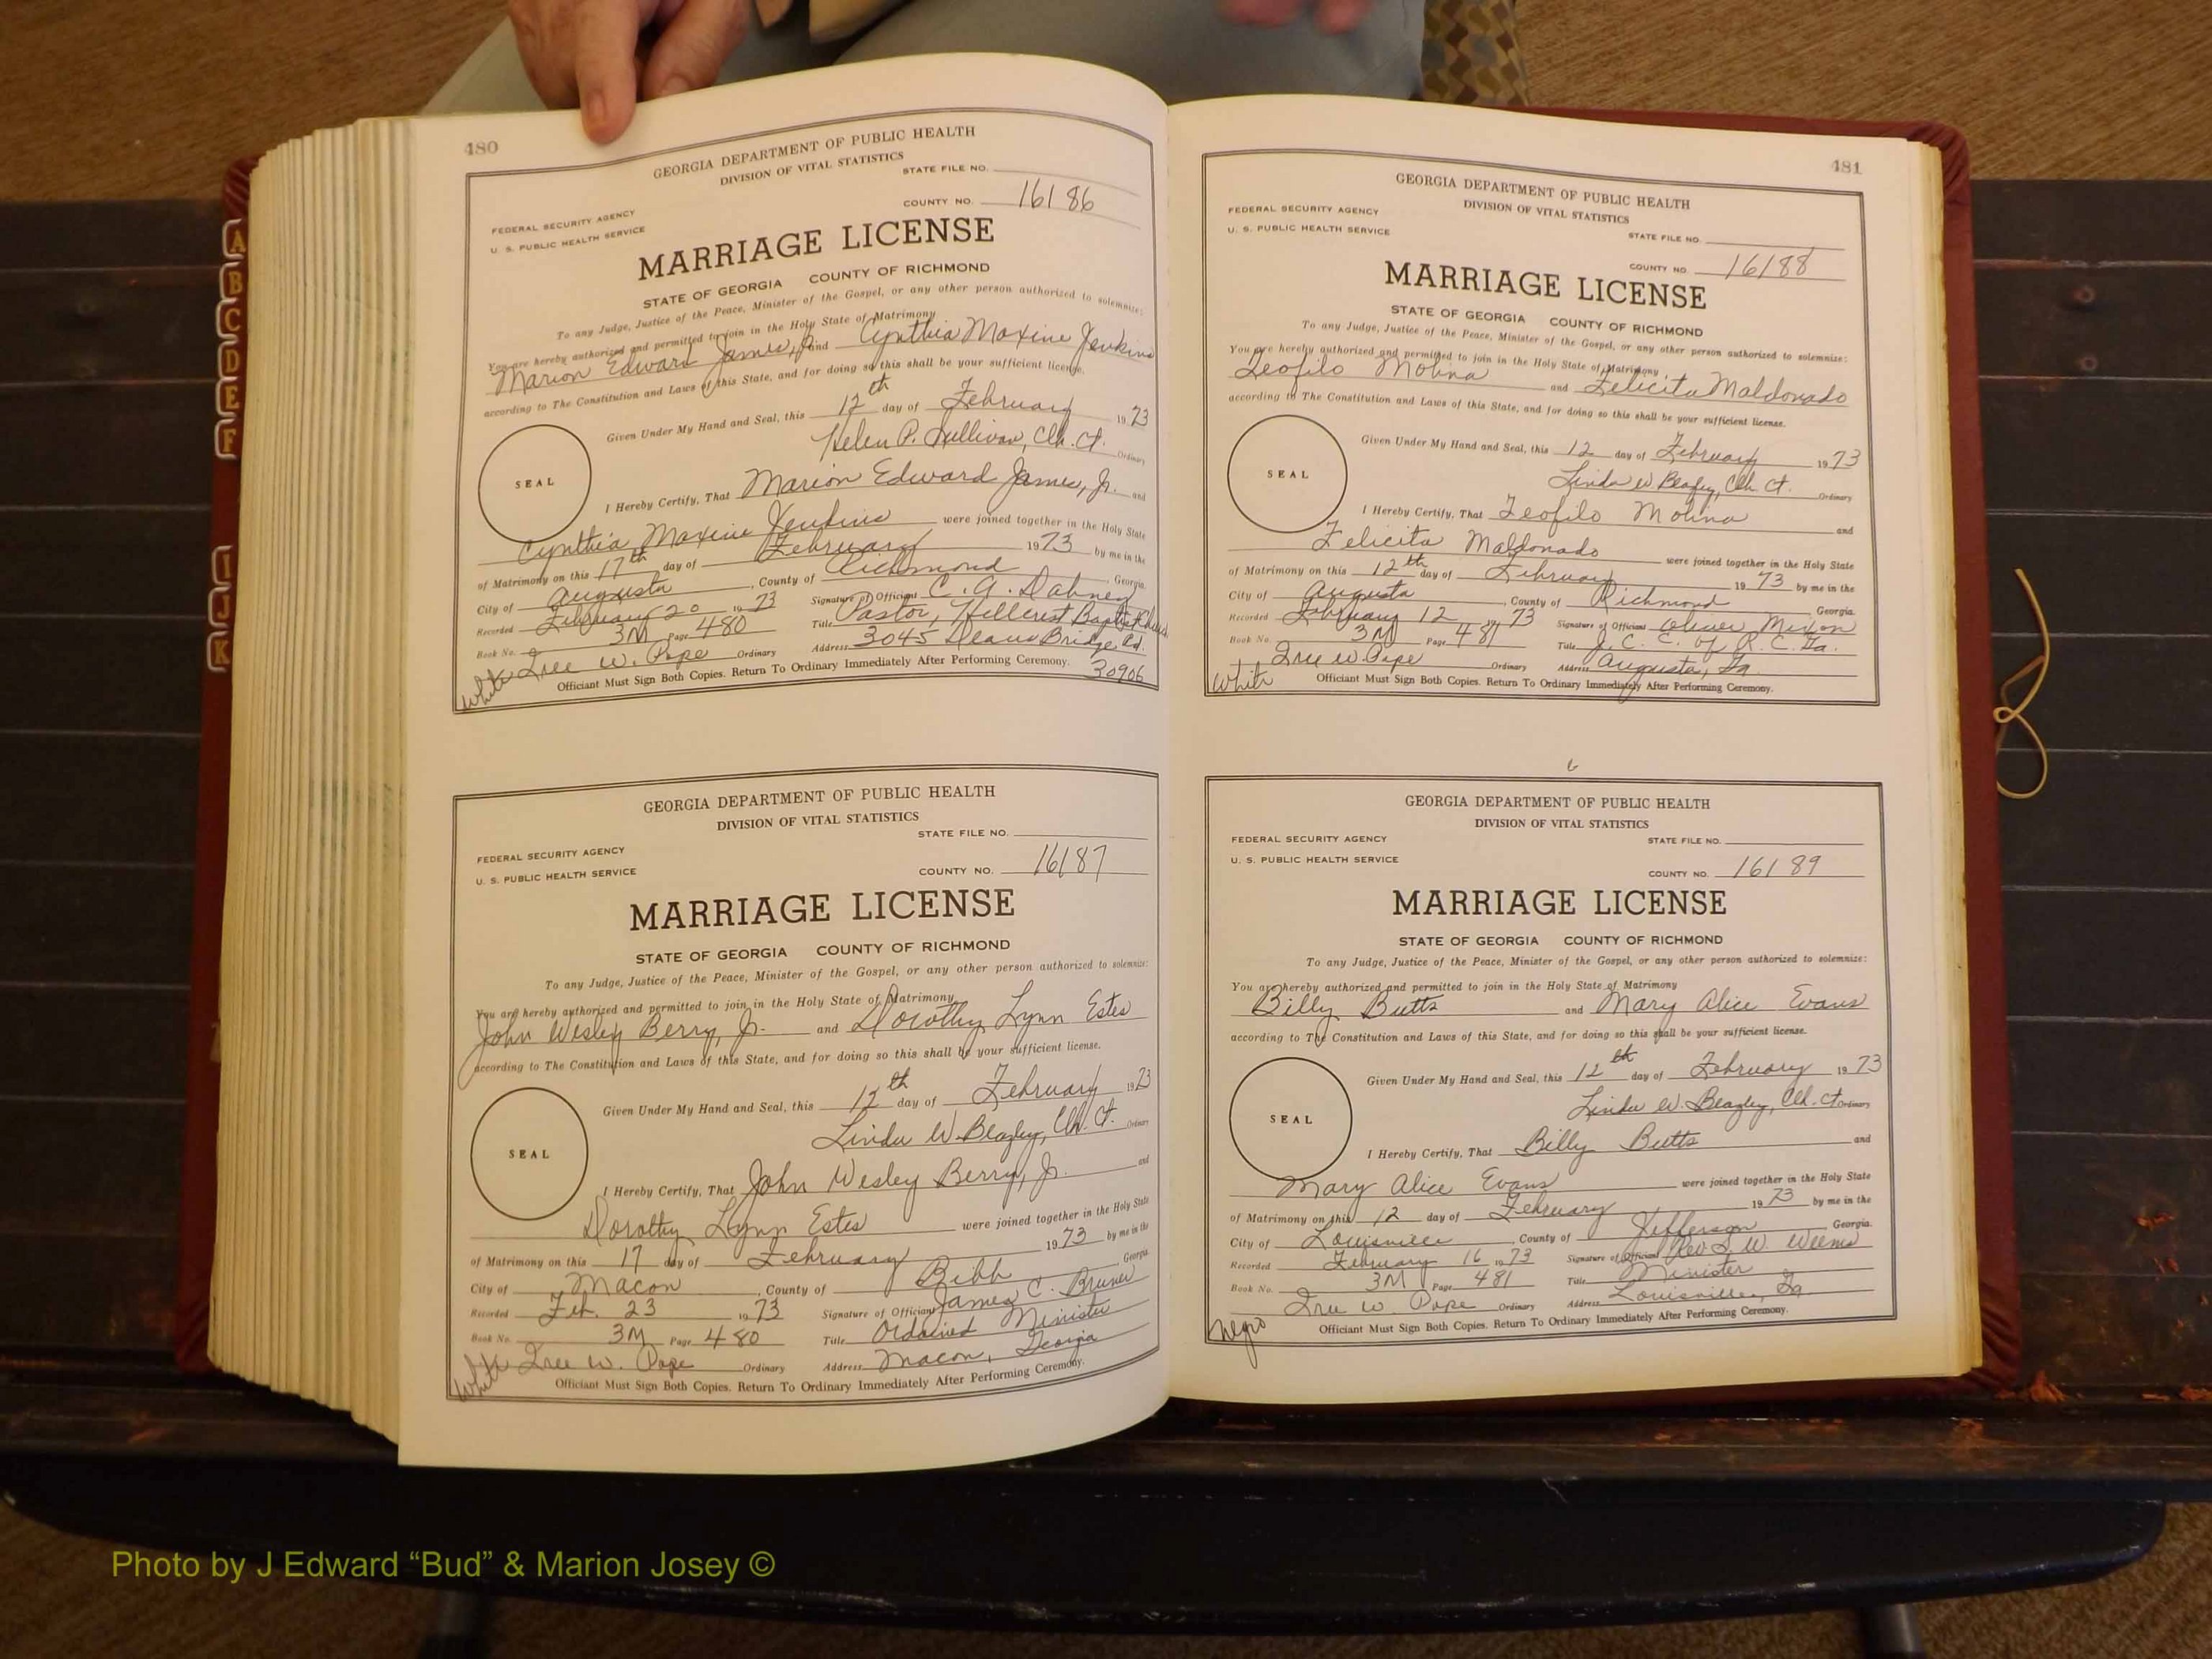 A
B
C
D
E
F
I
J
K
480
GEORGIA DEPARTMENT OF PUBLIC HEALTH
DIVISION OF VITAL STATISTICS
STATE FILE NO.
FEDERAL SECURITY AGENCY
U. S. PUBLIC HEALTH SERVICE
COUNTY NO. 16186
MARRIAGE LICENSE
STATE OF GEORGIA COUNTY OF RICHMOND
To any Judge, Justice of the Peace, Minister of the Gospel, or any other person authorized to solemnize:
You are hereby authorized and permitted to join in the Holy State of Matrimony
Marion Edward James, Jr. and Cynthia Maxine Jenkins
according to The Constitution and Laws of this State, and for doing so this shall be your sufficient license.
Given Under My Hand and Seal, this 12th day of February 1973
Helen P. Sullivan, Clk. Ct. Ordinary
SEAL
I Hereby Certify, That Marion Edward James, Jr. and
Cynthia Maxine Jenkins were joined together in the Holy State
of Matrimony on this 17th day of February 1973 by me in the
City of Augusta, County of Richmond, Georgia.
Recorded February 20 1973 Signature of Official C. A. Dabney
Book No. 3M Page 480 Title Pastor, Hillcrest Baptist Church
White Iree W. Pope Ordinary Address 3045 Deans Bridge Rd.
Officiant Must Sign Both Copies. Return To Ordinary Immediately After Performing Ceremony. 30906
GEORGIA DEPARTMENT OF PUBLIC HEALTH
DIVISION OF VITAL STATISTICS
STATE FILE NO.
FEDERAL SECURITY AGENCY
U. S. PUBLIC HEALTH SERVICE
COUNTY NO. 16187
MARRIAGE LICENSE
STATE OF GEORGIA COUNTY OF RICHMOND
To any Judge, Justice of the Peace, Minister of the Gospel, or any other person authorized to solemnize:
You are hereby authorized and permitted to join in the Holy State of Matrimony
John Wesley Berry, Jr. and Dorothy Lynn Estes
according to The Constitution and Laws of this State, and for doing so this shall be your sufficient license.
Given Under My Hand and Seal, this 12th day of February 1973
Linda W. Beazley, Clk. Ct. Ordinary
SEAL
I Hereby Certify, That John Wesley Berry, Jr. and
Dorothy Lynn Estes were joined together in the Holy State
of Matrimony on this 17 day of February 1973 by me in the
City of Macon, County of Bibb Georgia
Recorded Feb. 23 1973 Signature of Official James C. Bruner
Book No. 3M Page 480 Title Ordained Minister
White Iree W. Pope Ordinary Address Macon, Georgia
Officiant Must Sign Both Copies. Return To Ordinary Immediately After Performing Ceremony.
481
GEORGIA DEPARTMENT OF PUBLIC HEALTH
DIVISION OF VITAL STATISTICS
FEDERAL SECURITY AGENCY
U. S. PUBLIC HEALTH SERVICE
STATE FILE NO.
COUNTY NO. 16188
MARRIAGE LICENSE
STATE OF GEORGIA COUNTY OF RICHMOND
To any Judge, Justice of the Peace, Minister of the Gospel, or any other person authorized to solemnize:
You are hereby authorized and permitted to join in the Holy State of Matrimony
Teofilo Molina and Felicita Maldonado
according to The Constitution and Laws of this State, and for doing so this shall be your sufficient license.
Given Under My Hand and Seal, this 12 day of February 1973
Linda W Beazley, Clk. Ct. Ordinary
SEAL
I Hereby Certify, That Teofilo Molina and
Felicita Maldonado were joined together in the Holy State
of Matrimony on this 12th day of February 1973 by me in the
City of Augusta, County of Richmond, Georgia.
Recorded February 12 1973 Signature of Official Oliver Mixon
Book No. 3M Page 481 Title J. C. C. of R. C. Ga.
Iree W Pope Ordinary Address Augusta, Ga
White Officiant Must Sign Both Copies. Return To Ordinary Immediately After Performing Ceremony.
GEORGIA DEPARTMENT OF PUBLIC HEALTH
DIVISION OF VITAL STATISTICS
FEDERAL SECURITY AGENCY
STATE FILE NO.
U. S. PUBLIC HEALTH SERVICE
COUNTY NO. 16189
MARRIAGE LICENSE
STATE OF GEORGIA COUNTY OF RICHMOND
To any Judge, Justice of the Peace, Minister of the Gospel, or any other person authorized to solemnize:
You are hereby authorized and permitted to join in the Holy State of Matrimony
Billy Butts and Mary Alice Evans
according to The Constitution and Laws of this State, and for doing so this shall be your sufficient license.
Given Under My Hand and Seal, this 12th day of February 1973
Linda W. Beazley, Clk. Ct Ordinary
SEAL
I Hereby Certify, That Billy Butts and
Mary Alice Evans were joined together in the Holy State
of Matrimony on this 12 day of February 1973 by me in the
City of Louisville, County of Jefferson, Georgia.
Recorded February 16 1973 Signature of Official Rev. S. W. Weems
Book No. 3M Page 481 Title Minister
Iree W. Pope Ordinary Address Louisville, Ga.
Negro Officiant Must Sign Both Copies. Return To Ordinary Immediately After Performing Ceremony.
Photo by J Edward “Bud” & Marion Josey ©